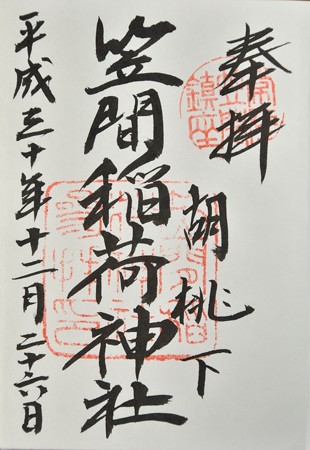 奉拝
胡桃下
笠間稲荷神社
平成三十年十二月二十六日